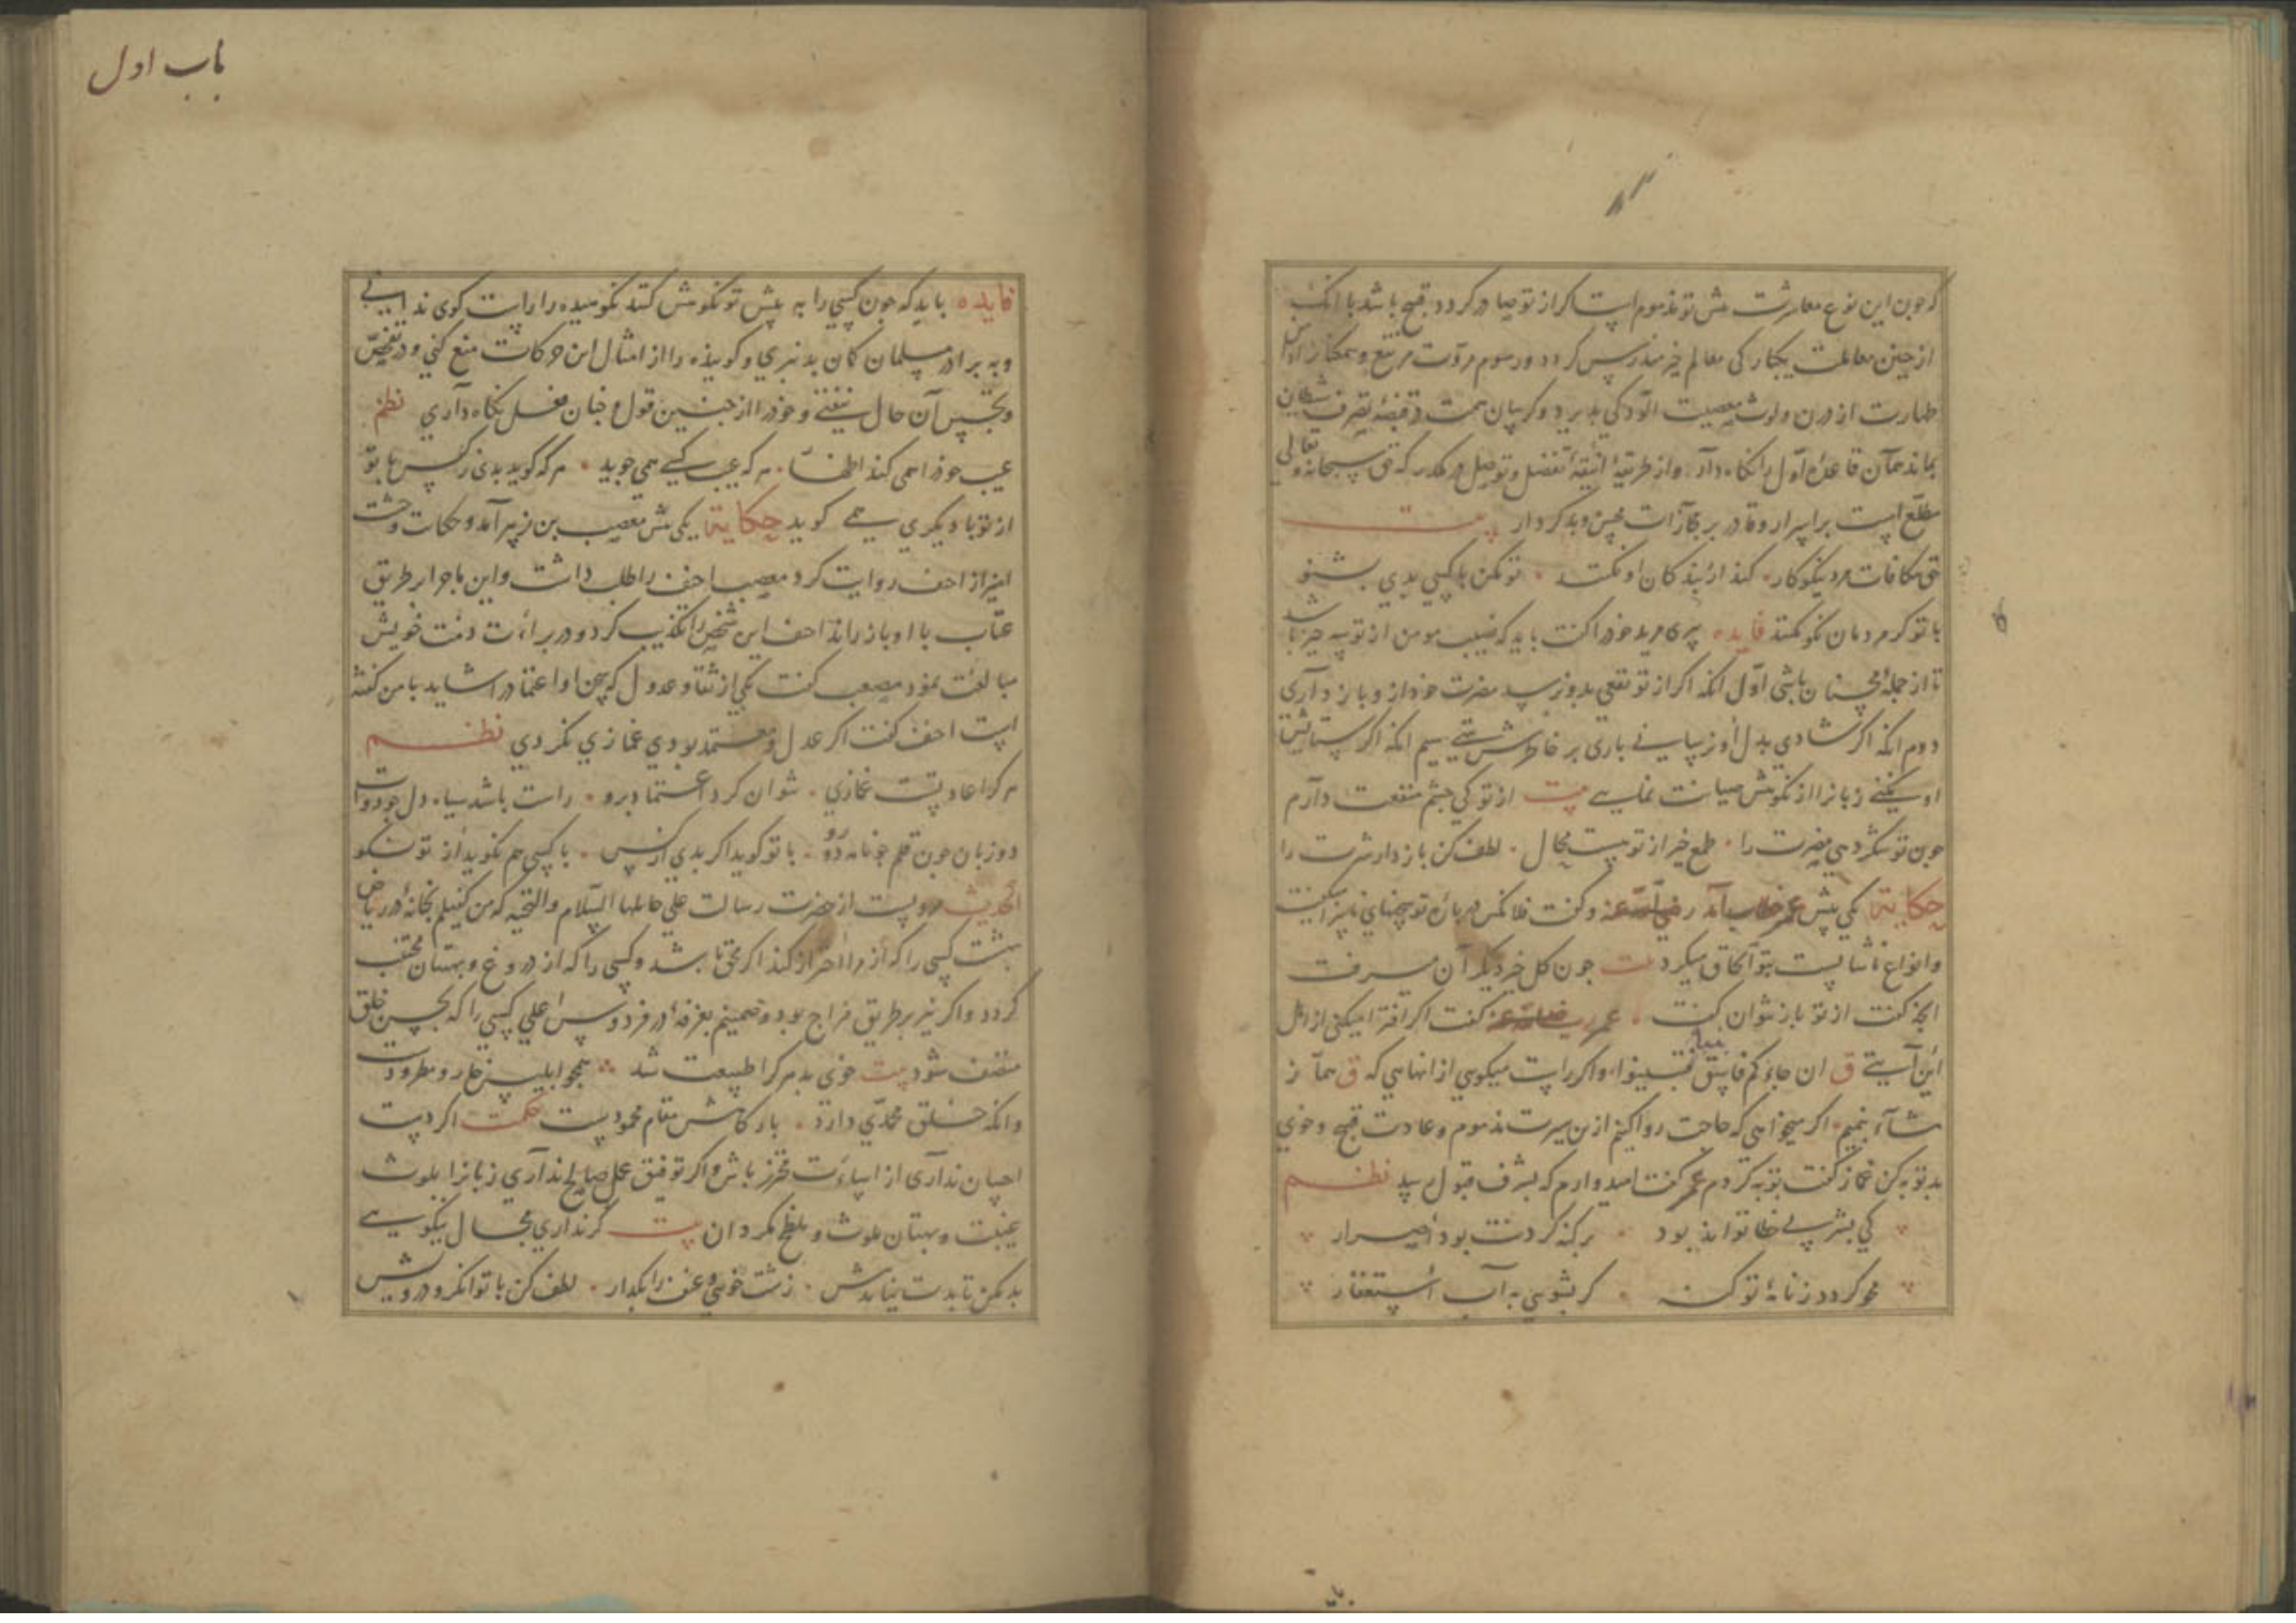 که چون این نوع معاشرت پیش تو مذموم است اگر از تو صادر کردد قبیح باشد با آنک
از چنین معاملت یکبارکی معالم خیر مندرس کردد ورسوم مروت مرتفع
طهارت از درن ولوث معصیت آلودکی پذیرد وکریبان همت در قبضهٔ تصرف شیطان
بماند همان قاعدهٔ اول را نکاه دار واز طریقهٔ تفضل در مکذر که حق سبحانه وتعالی
مطلع است بر اسرار وقادر بر مجازات محسن وبدکردار بیت
حق مکافات مرد نیکوکار کند از بندکان او نکند تو مکن با کسی بدی بشنو
با تو کر مردمان نکو نکنند فایده پیری مرید خود را کفت باید که نصیب مومن از تو سه چیز باشد
تا از جملهٔ محسنان باشی اول آنکه اکر از تو نفعی بدو نرسد مضرت خود ازو باز داری
دوم آنکه اکر شادی بدل او نرسانی باری بر خاطرش سیم آنکه اکر ستایش
او نکنی زبانرا از نکوهش صیانت نمایی بیت از تو کی چشم منفعت دارم
چون تو سکر دهی مضرت را طمع خیر از تو هست محال لطف کن باز دار شرت را
حکایة یکی پیش عمر خطاب آمد رضی الله عنه وکفت فلانکس دربارهٔ تو سخنهای ناسزا میکفت
وانواع ناشایست بتو الحاق میکرد بیت چون کل خیر دیکر آن میرفت
آنچه کفت از تو باز نتوان کفت عمر رضی الله عنه کفت اکر افترا میکنی از اهل
این آیتی ق ان جاءکم فاسق بنبأ فتبینوا واکر راست میکویی از آنهایی که ق هماز
مشاء بنمیم اکر میخواهی که حاجت روا کنیم ازین سیرت مذموم وعادت قبیح وخوی
بد توبه کن غماز کفت توبه کردم عمر کفت امیدوارم که بشرف قبول رسد نظم
کی بشر بی خطا تواند بود بر کنه کردنت بود اصرار
محو کردد زنامهٔ تو کنه کر بشویی به آب استغفار
باب اول
فایده باید که چون کسی را به پیش تو نکوهش کنند نکوهیده را راست کوی ندانی
وبه برادر مسلمان کمان بد نبری وکوینده را از امثال این حرکات منع کنی ودر تفحص
وتجسس آن حال نیفتی وخود را از چنین قول وچنان فعل نکاه داری نظم
عیب خود را همی کند اظهار هر که عیب کسی همی جوید هر که کوید بدی زکس با تو
از تو با دیکری همی کوید حکایة یکی پیش مصعب بن زبیر آمد وحکایت وحشت
آمیز از احنف روایت کرد مصعب احنف را طلب داشت واین ماجرا بر طریق
عتاب با او باز راند احنف این شخص را تکذیب کرد ودر براءت ذمت خویش
مبالغت نمود مصعب کفت یکی از ثقات وعدول که سخن او اعتماد را شاید با من کفته
است احنف کفت اکر عدل ومعتمد بودی غمازی نکردی نظم
هر کرا عادتست غمازی نتوان کرد اعتماد برو راست باشد سیاه دل چو دوات
دو زبان چون قلم چو نامه دو رو با تو کوید اکر بدی از کس با کسی هم نکوید از تو نکو
الحدیث مرویست از حضرت رسالت علی حاملها السلام والتحیة که من کفیلم بخانهٔ در ریاض
بهشت کسی را که از مرا احتراز کند اکر محق باشد وکسی را که از دروغ وبهتان مجتنب
کردد واکر نیز بر طریق مزاح بود وضمینم بغرفهٔ در فردوس اعلی کسی را که بحسن خلق
متصف شود بیت خوی بد هر کرا طبیعت شد همچو ابلیس خوار ومطرودست
وانکه خلق محمدی دارد بارکاهش مقام محمودست حکمت اکر دست
احسان نداری از اساءت محترز باش واکر توفیق عمل صالح نداری زبانرا بلوث
غیبت وبهتان ملوث وملطخ مکردان بیت کر نداری مجال نیکویی
بد مکن تا بدت نیاید پیش زشت خویی وعنف را بکذار لطف کن با توانکر ودرویش